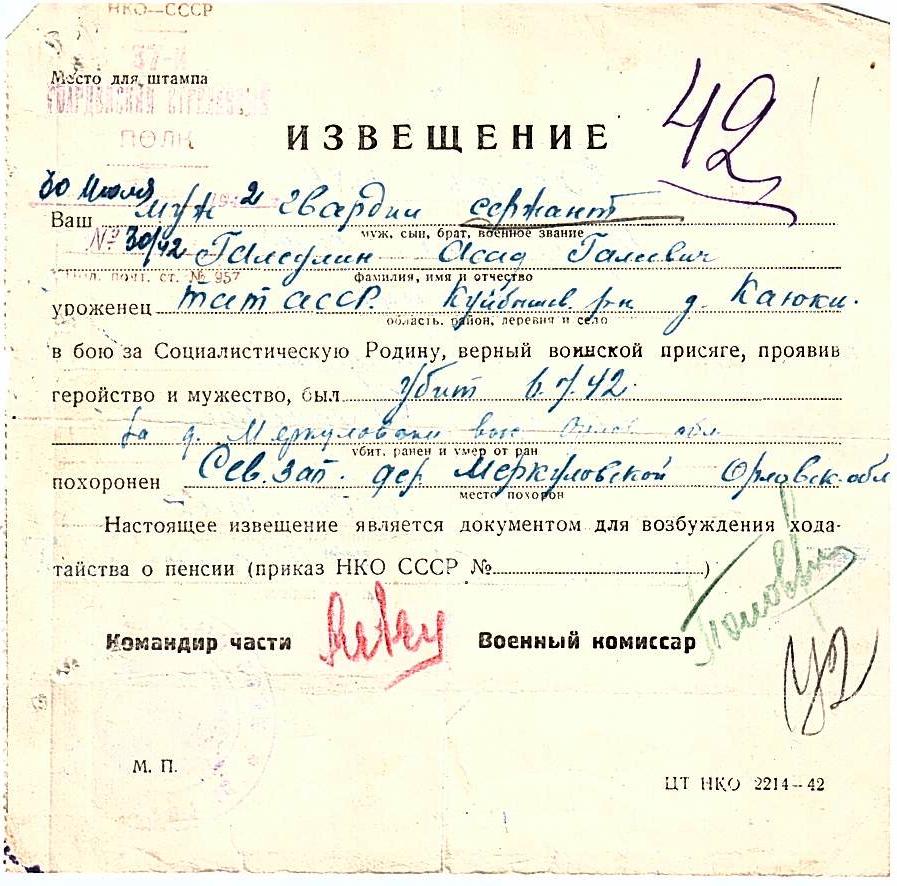 НКО—СССР
37-й
Место для штампа
ГВАРДЕЙСКИЙ СТРЕЛКОВЫЙ
ПОЛК
ИЗВЕЩЕНИЕ
42
30 Июля 1942
Ваш муж гвардии сержант
муж, сын, брат, военное звание
№ 30/42 Галеулин Асад Галеевич
почт. ст. № 957 фамилия, имя и отчество
уроженец Тат АССР. Куйбышев. р-н д. Каюки.
область, район, деревня и село
в бою за Социалистическую Родину, верный воинской присяге, проявив
геройство и мужество, был Убит 6.7.42.
За д. Меркуловский обл
убит, ранен и умер от ран
похоронен Сев. зап. дер Меркуловской Орловск. обл
место похорон
Настоящее извещение является документом для возбуждения хода-
тайства о пенсии (приказ НКО СССР № )
Командир части Военный комиссар
42
М. П.
ЦТ НКО 2214—42